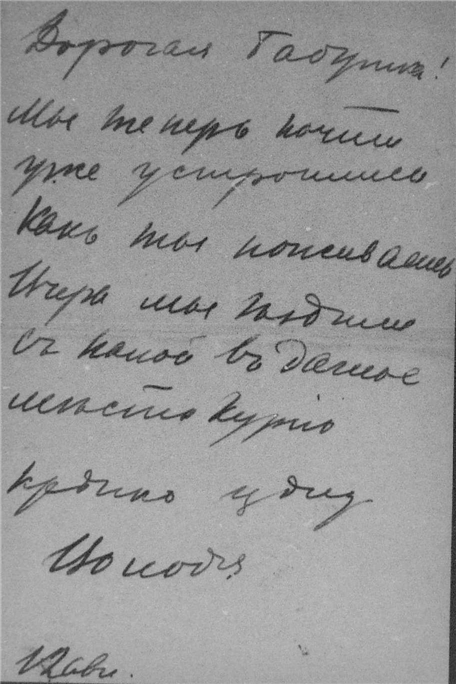 Дорогая Бабушка!
Мы теперь почти
уже устроились
Какъ ты поживаешь
Вчера мы ходили
съ папой въ
место
крѣпко цѣлую
Володя